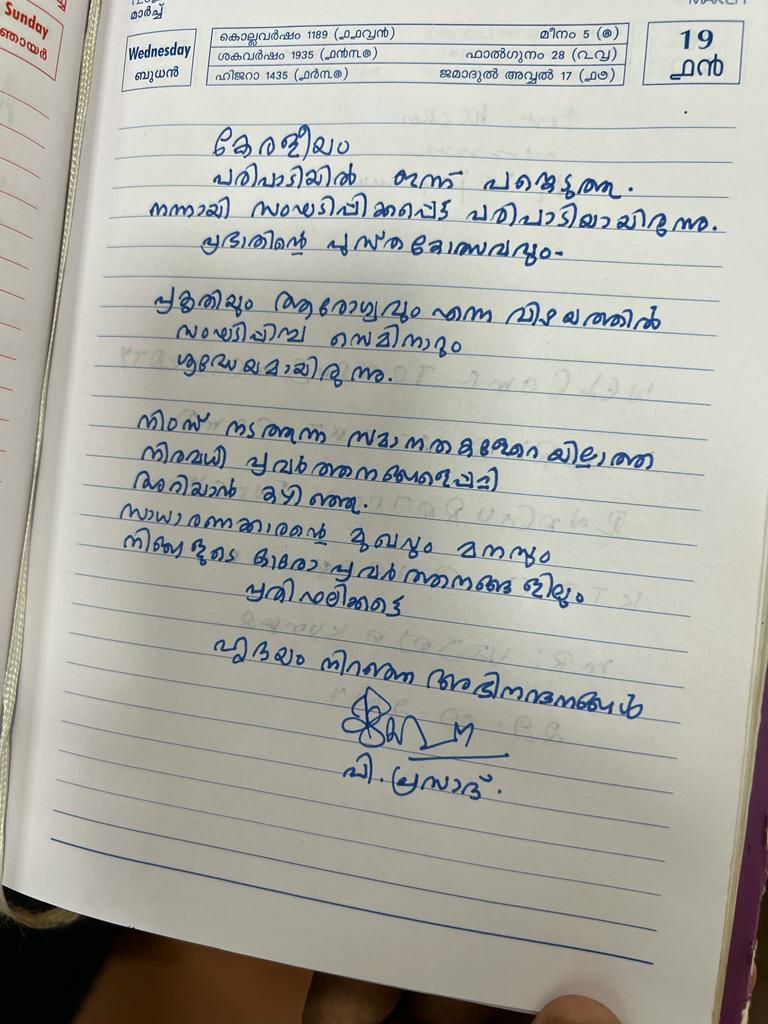 Sunday
ഞായർ
മാർച്ച്
Wednesday
ബുധൻ
കൊല്ലവർഷം 1189 (൧൧൮൯) മീനം 5 (൫)
ശകവർഷം 1935 (൧൯൩൫) ഫാൽഗുനം 28 (൨൮)
ഹിജറാ 1435 (൧൪൩൫) ജമാദുൽ അവ്വൽ 17 (൧൭)
19
൧൯
കേരളീയം
പരിപാടിയിൽ ഇന്ന് പങ്കെടുത്തു.
നന്നായി സംഘടിപ്പിക്കപ്പെട്ട പരിപാടിയായിരുന്നു.
പ്രഭാതിന്റെ പുസ്തകോത്സവവും
പ്രകൃതിയും ആരോഗ്യവും എന്ന വിഷയത്തിൽ
സംഘടിപ്പിച്ച സെമിനാറും
ശ്രദ്ധേയമായിരുന്നു.
നിംസ് നടത്തുന്ന സമാനതകളേറെയില്ലാത്ത
നിരവധി പ്രവർത്തനങ്ങളെപ്പറ്റി
അറിയാൻ കഴിഞ്ഞു.
സാധാരണക്കാരന്റെ മുഖവും മനസും
നിങ്ങളുടെ ഓരോ പ്രവർത്തനങ്ങളിലും
പ്രതിഫലിക്കട്ടെ
ഹൃദയം നിറഞ്ഞ അഭിനന്ദനങ്ങൾ
പി. പ്രസാദ്.